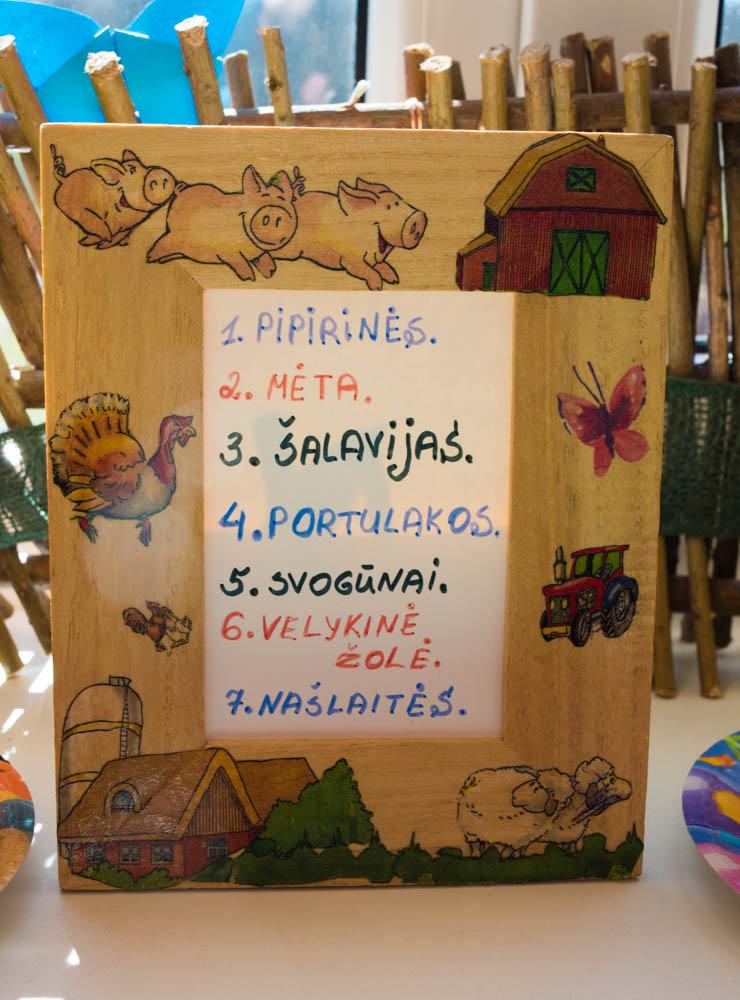 1. PIPIRINĖS.
2. MĖTA.
3. ŠALAVIJAS.
4. PORTULAKOS.
5. SVOGŪNAI.
6. VELYKINĖ
ŽOLĖ.
7. NAŠLAITĖS.